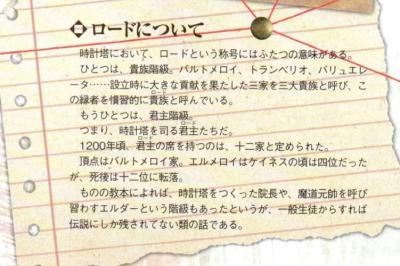 ロードについて
時計塔において、ロードという称号にはふたつの意味がある。
ひとつは、貴族階級。バルトメロイ、トランベリオ、バリュエレ
ータ……設立時に大きな貢献を果たした三家を三大貴族と呼び、こ
の縁者を慣習的に貴族と呼んでいる。
もうひとつは、君主階級。
つまり、時計塔を司る君主たちだ。
1200年頃、君主の席を持つのは、十二家と定められた。
頂点はバルトメロイ家。エルメロイはケイネスの頃は四位だった
が、死後は十二位に転落。
ものの教本によれば、時計塔をつくった院長や、魔道元帥を呼び
習わすエルダーという階級もあったというが、一般生徒からすれば
伝説にしか残されてない類の話である。